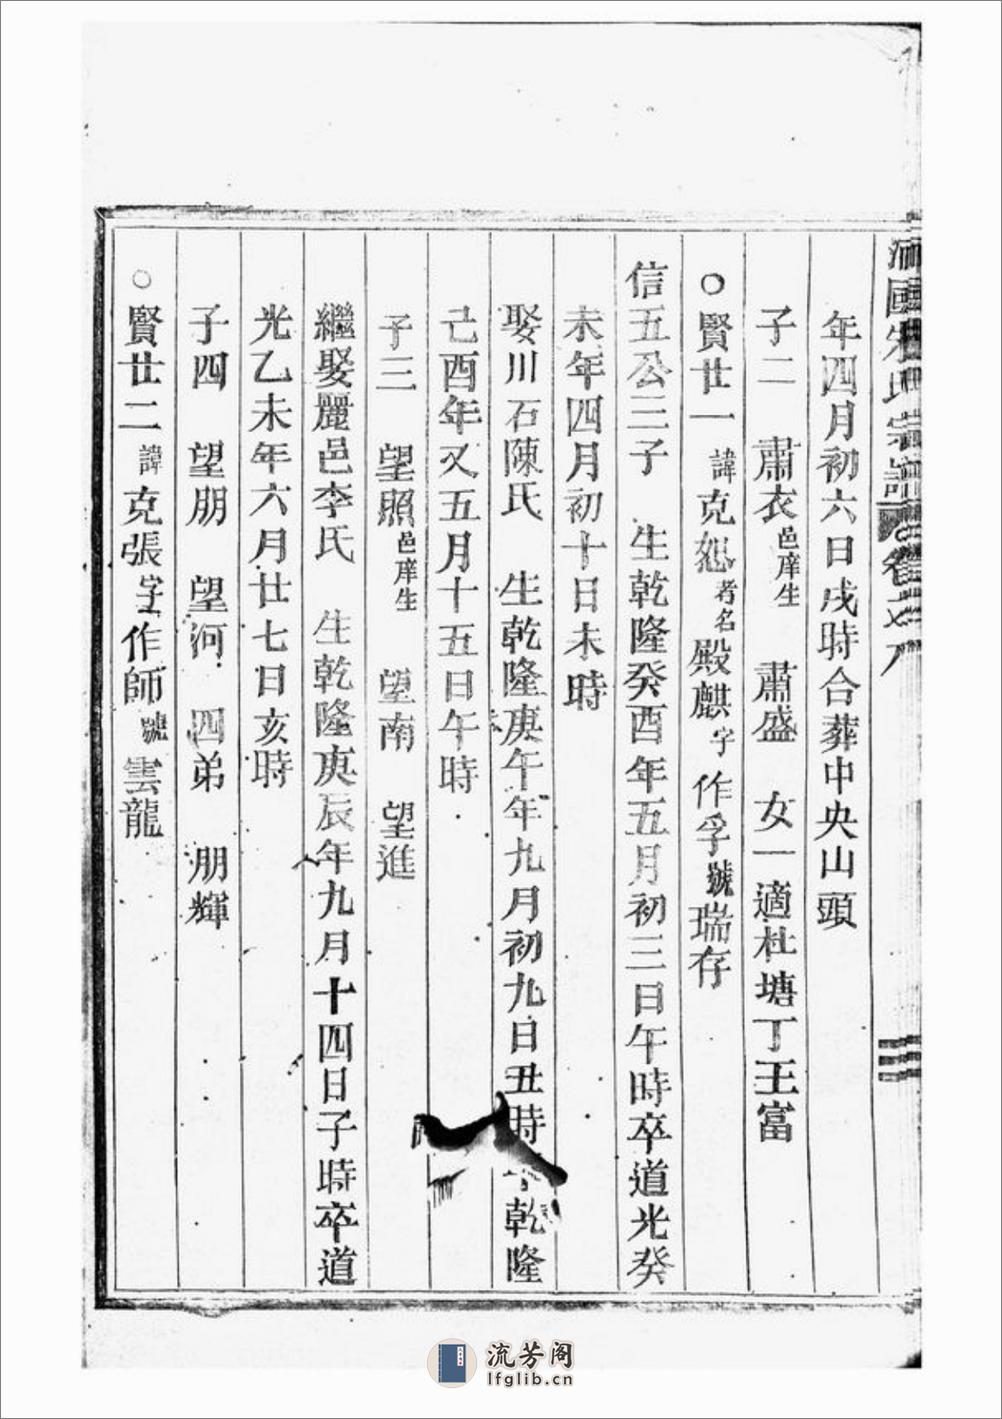 國 氏宗譜 卷之八
年四月初六日戌時合葬中央山頭
子二 肅衣邑庠生 肅盛 女一適杜塘丁王富
○賢世一諱克恕者名殿麒字作孚號瑞存
信五公三子 生乾隆癸酉年五月初三日午時卒道光癸
未年四月初十日未時
娶川石陳氏 生乾隆庚午年九月初九日丑時 乾隆
己酉年又五月十五日午時
子三 望照邑庠生 望南 望進
繼娶麗邑李氏 生乾隆庚辰年九月十四日子時卒道
光乙未年六月廿七日亥時
子四 望朋 望河 四弟 朋輝
○賢世二諱克張字作師號雲龍
流芳阁
lfglib.cn